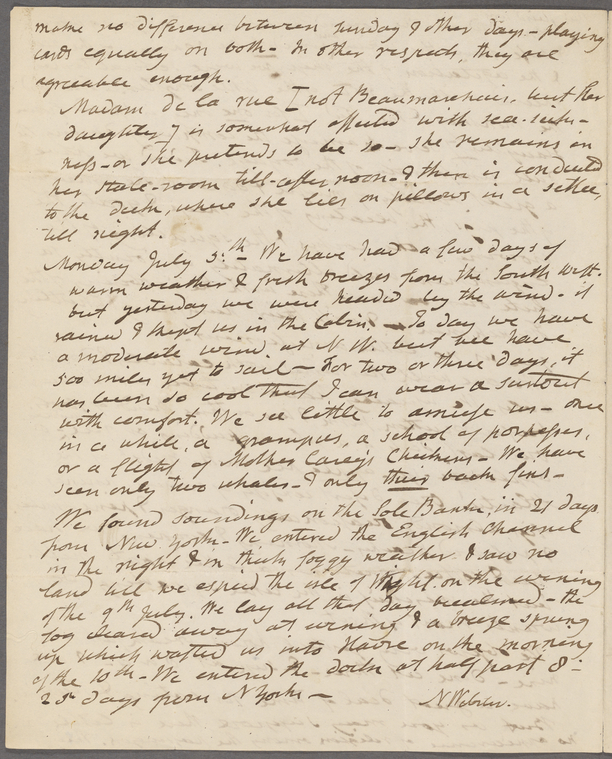 make no difference between Sunday & other days - playing
cards equally on both - In other respects, they are
agreeable enough.
Madam de la rue [not Beaumarchais, but her
daughter] is somewhat affected with sea-sick-
ness - or she pretends to be so - she remains in
her state-room till afternoon - & then is conducted
to the deck, where she lies on pillows in a settee,
till night.
Monday July 5.th - We have had a few days of
warm weather & fresh breezes from the South west -
but yesterday we were headed by the wind - it
rained & kept us in the Cabin. - To day we have
a moderate wind at N W. but we have
500 miles yet to sail - For two or three days, it
has been so cool that I can wear a surtout
with comfort. We see little to amuse us - once
in a while, a grampus, a school of porpesses,
or a flight of Mother Carey's Chickens - We have
seen only two whales - & only their back fins -
We found soundings on the Sole Bank, in 21 days
from New York - We entered the English Channel
in the night & in thick foggy weather & saw no
land till we espied the isle of Wight on the evening
of the 9th July. We lay all that day becalmed - the
fog cleared away at evening & a breeze sprung
up which wafted us into Havre on the morning
of the 10th - We entered the dock at half past 8 -
25 days from N York -
N Webster.